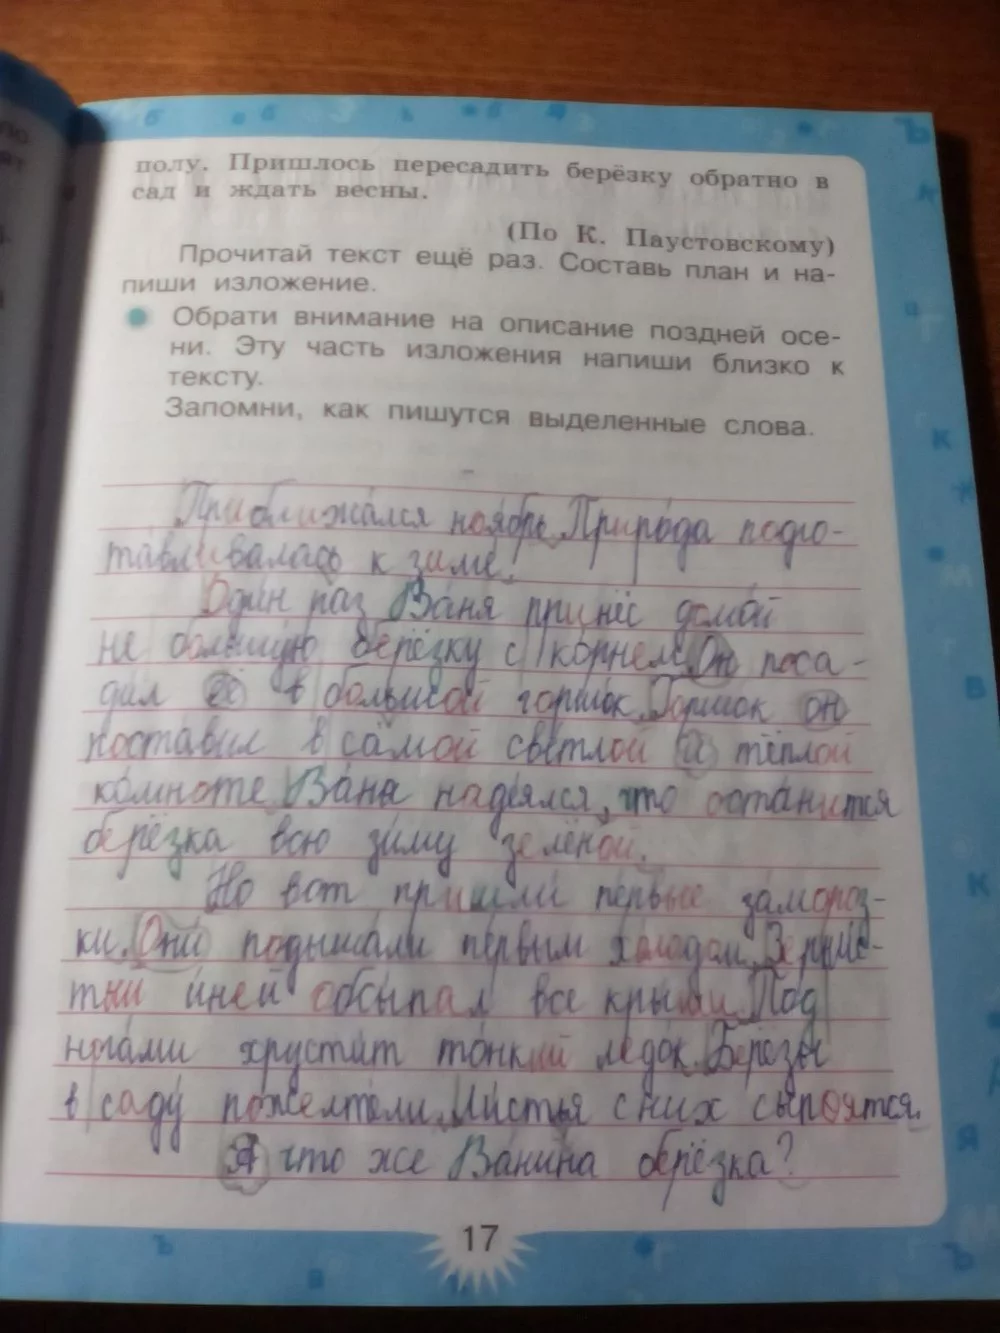 полу. Пришлось пересадить берёзку обратно в
сад и ждать весны.
(По К. Паустовскому)
Прочитай текст ещё раз. Составь план и на-
пиши изложение.
Обрати внимание на описание поздней осе-
ни. Эту часть изложения напиши близко к
тексту.
Запомни, как пишутся выделенные слова.
Приближался ноябрь. Природа подго-
тавливалась к зиме.
Один раз Ваня принёс домой
не большую берёзку с корнем. Он поса-
дил её в большой горшок. Горшок он
поставил в самой светлой и тёплой
комноте. Ваня надеялся, что останится
берёзка всю зиму зелёной.
Но вот пришли первые замороз-
ки. Они подышали первым холодом. Зернис-
тый иней обсыпал все крыши. Под
ногами хрустит тонкий ледок. Берёзы
в саду пожелтели. Листья с них сыпоятся.
А что же Ванина берёзка?
17